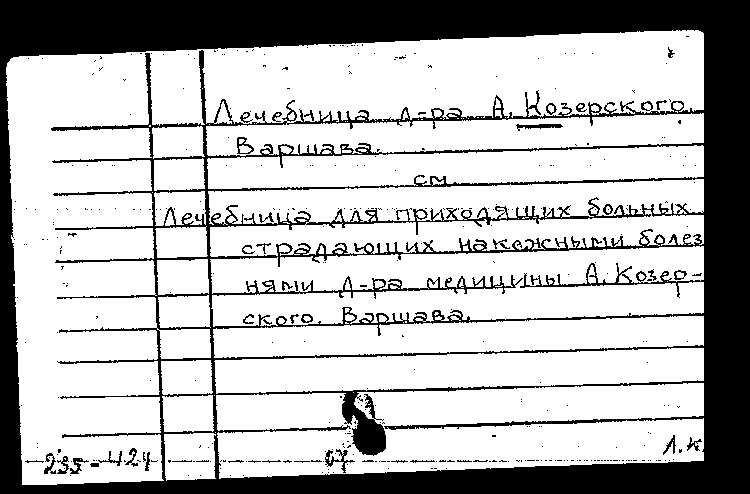 Лечебница д-ра А. Козерского.
Варшава.
см.
Лечебница для приходящих больных
страдающих накожными болез
нями д-ра медицины А. Козер-
ского. Варшава.
235-424
Л.К.